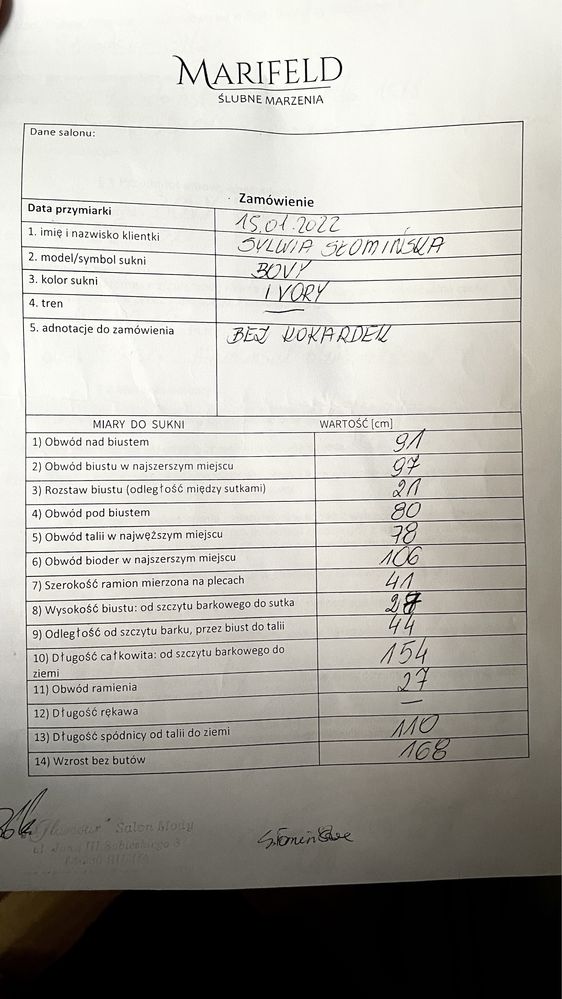 MARIFELD
ŚLUBNE MARZENIA
Dane salonu:
Zamówienie
Data przymiarki 15.01.2022
1. imię i nazwisko klientki SYLWIA SŁOMIŃSKA
2. model/symbol sukni BOVY
3. kolor sukni IVORY
4. tren —
5. adnotacje do zamówienia BEZ KOKARDEK
MIARY DO SUKNI WARTOŚĆ [cm]
1) Obwód nad biustem 91
2) Obwód biustu w najszerszym miejscu 97
3) Rozstaw biustu (odległość między sutkami) 21
4) Obwód pod biustem 80
5) Obwód talii w najwęższym miejscu 78
6) Obwód bioder w najszerszym miejscu 106
7) Szerokość ramion mierzona na plecach 41
8) Wysokość biustu: od szczytu barkowego do sutka
9) Odległość od szczytu barku, przez biust do talii 44
10) Długość całkowita: od szczytu barkowego do
ziemi 154
11) Obwód ramienia 27
12) Długość rękawa —
13) Długość spódnicy od talii do ziemi 110
14) Wzrost bez butów 168
"Glamour" Salon Mody
ul. Jana III Sobieskiego 3